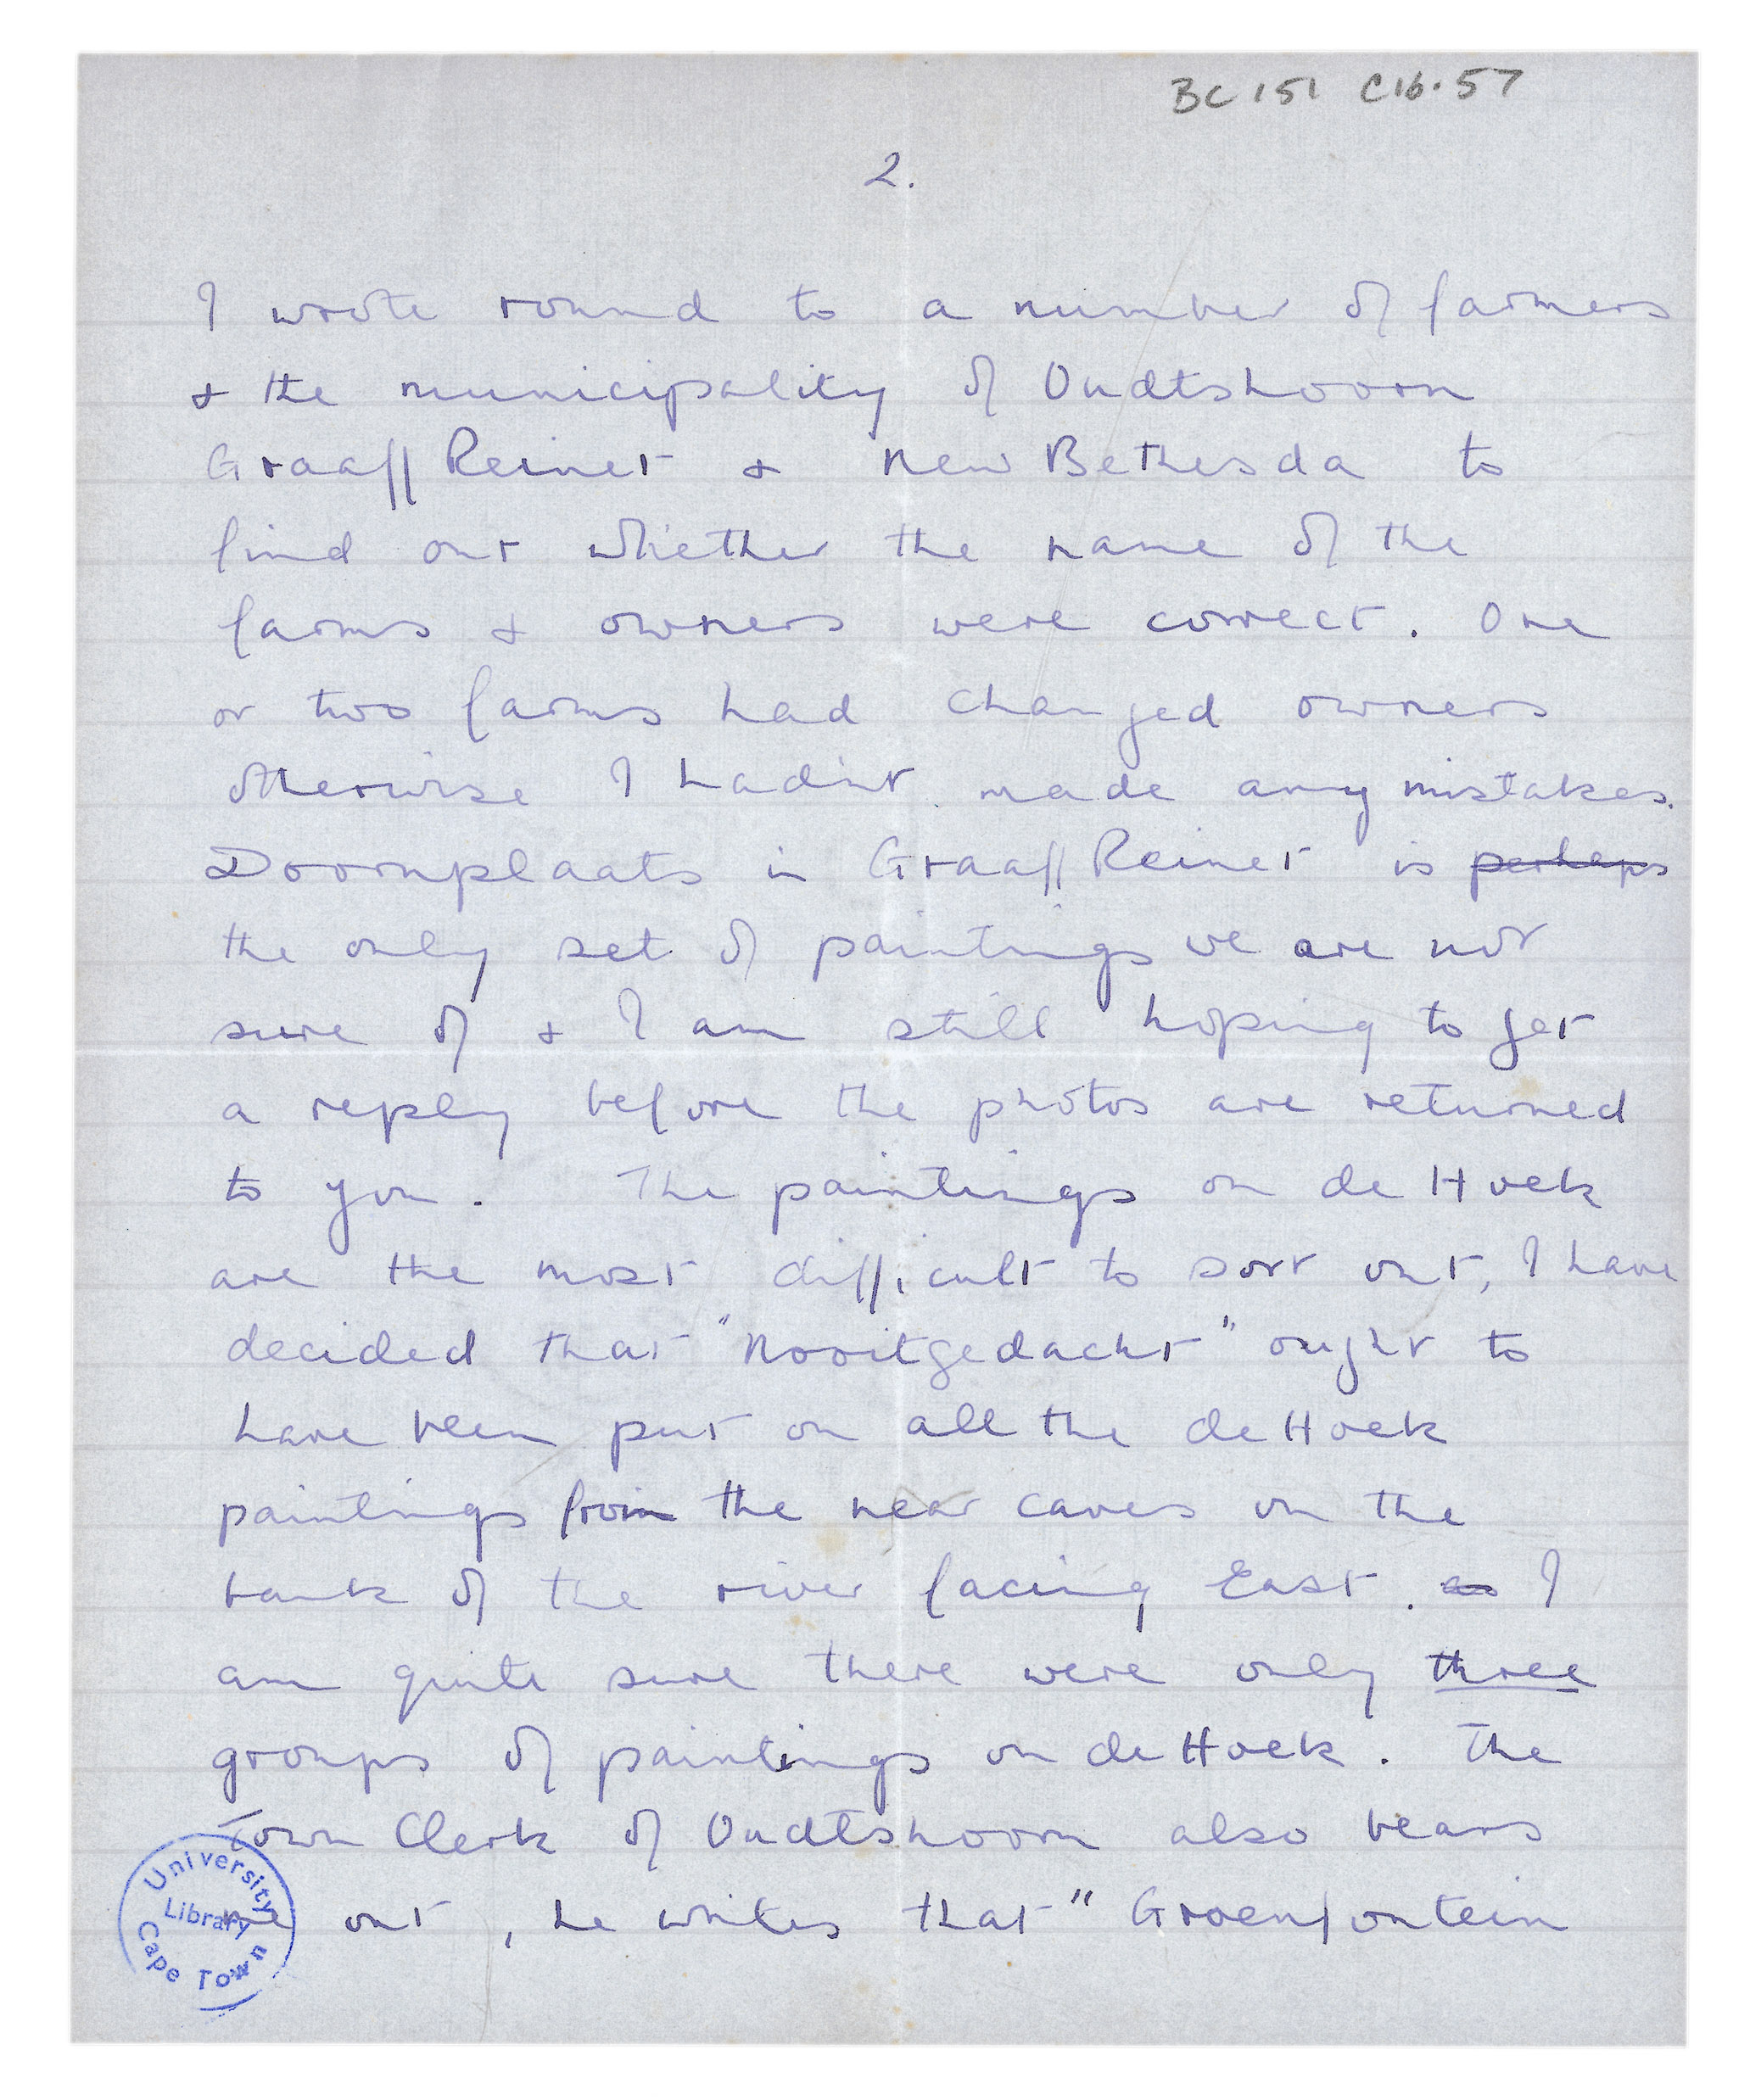 BC 151 C16.57
2.
I wrote round to a number of farmers
& the municipality of Oudtshoorn
Graaff Reinet & New Bethesda to
find out whether the name of the
farms & owners were correct. One
or two farms had changed owners
otherwise I hadn't made any mistakes.
Doornplaats in Graaff Reinet is perhaps
the only set of paintings we are not
sure of & I am still hoping to get
a reply before the photos are returned
to you. The paintings on de Hoek
are the most difficult to sort out, I have
decided that "Nooitgedacht" ought to
have been put on all the de Hoek
paintings from the near caves on the
bank of the river facing East. as I
am quite sure there were only three
groups of paintings on de Hoek. The
Town Clerk of Oudtshoorn also bears
me out, he writes that "Groenfontein
University
Library
Cape Town